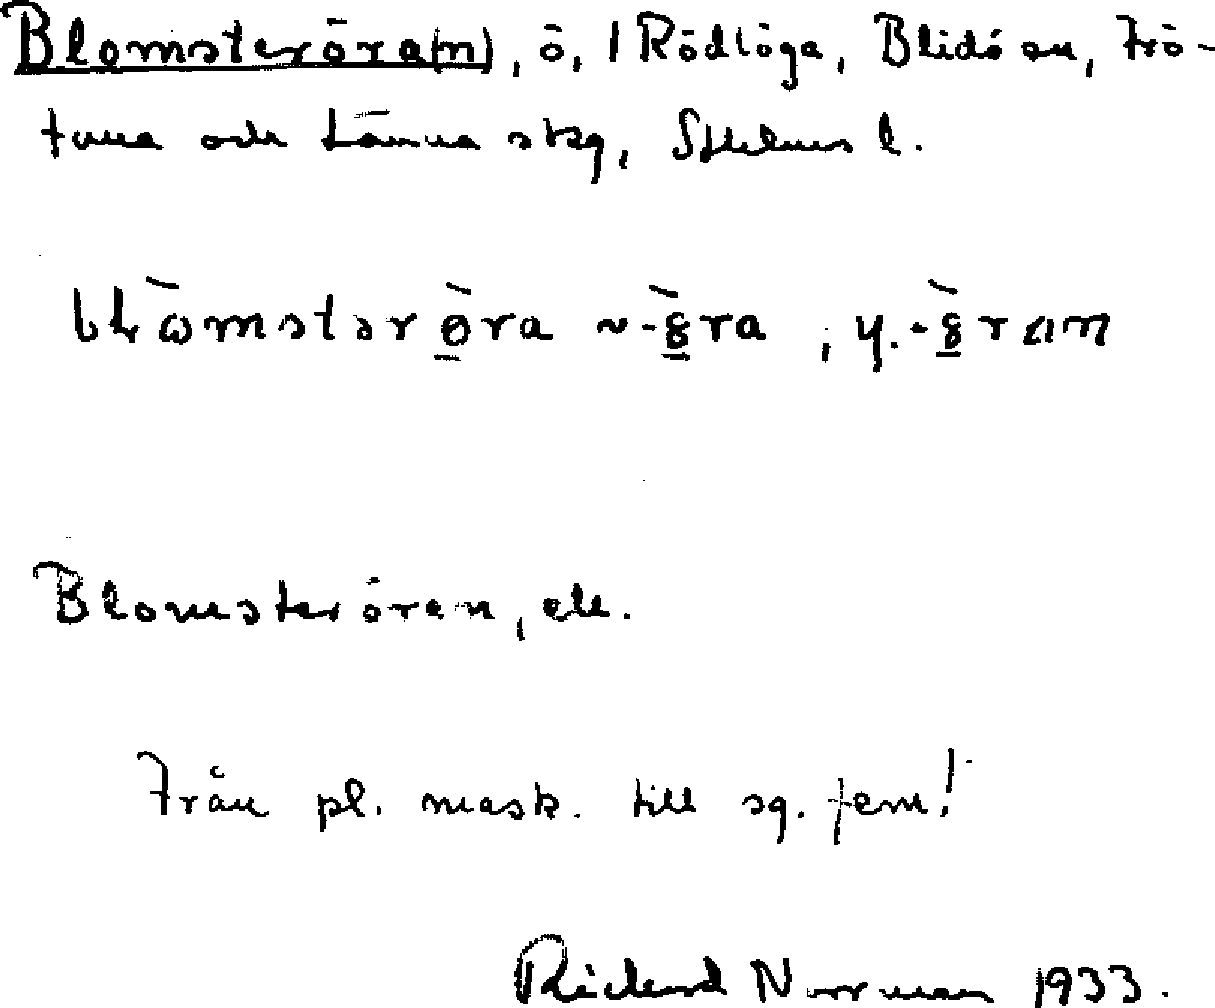 Blomsteröra(n), ö, i Rödlöga, Blidö sn, Frö-
tuna och Länna skg, Sthlms l.
Blomsterören, ell.
Från pl. mask. till sg. fem!
Rickard Norrman 1933.